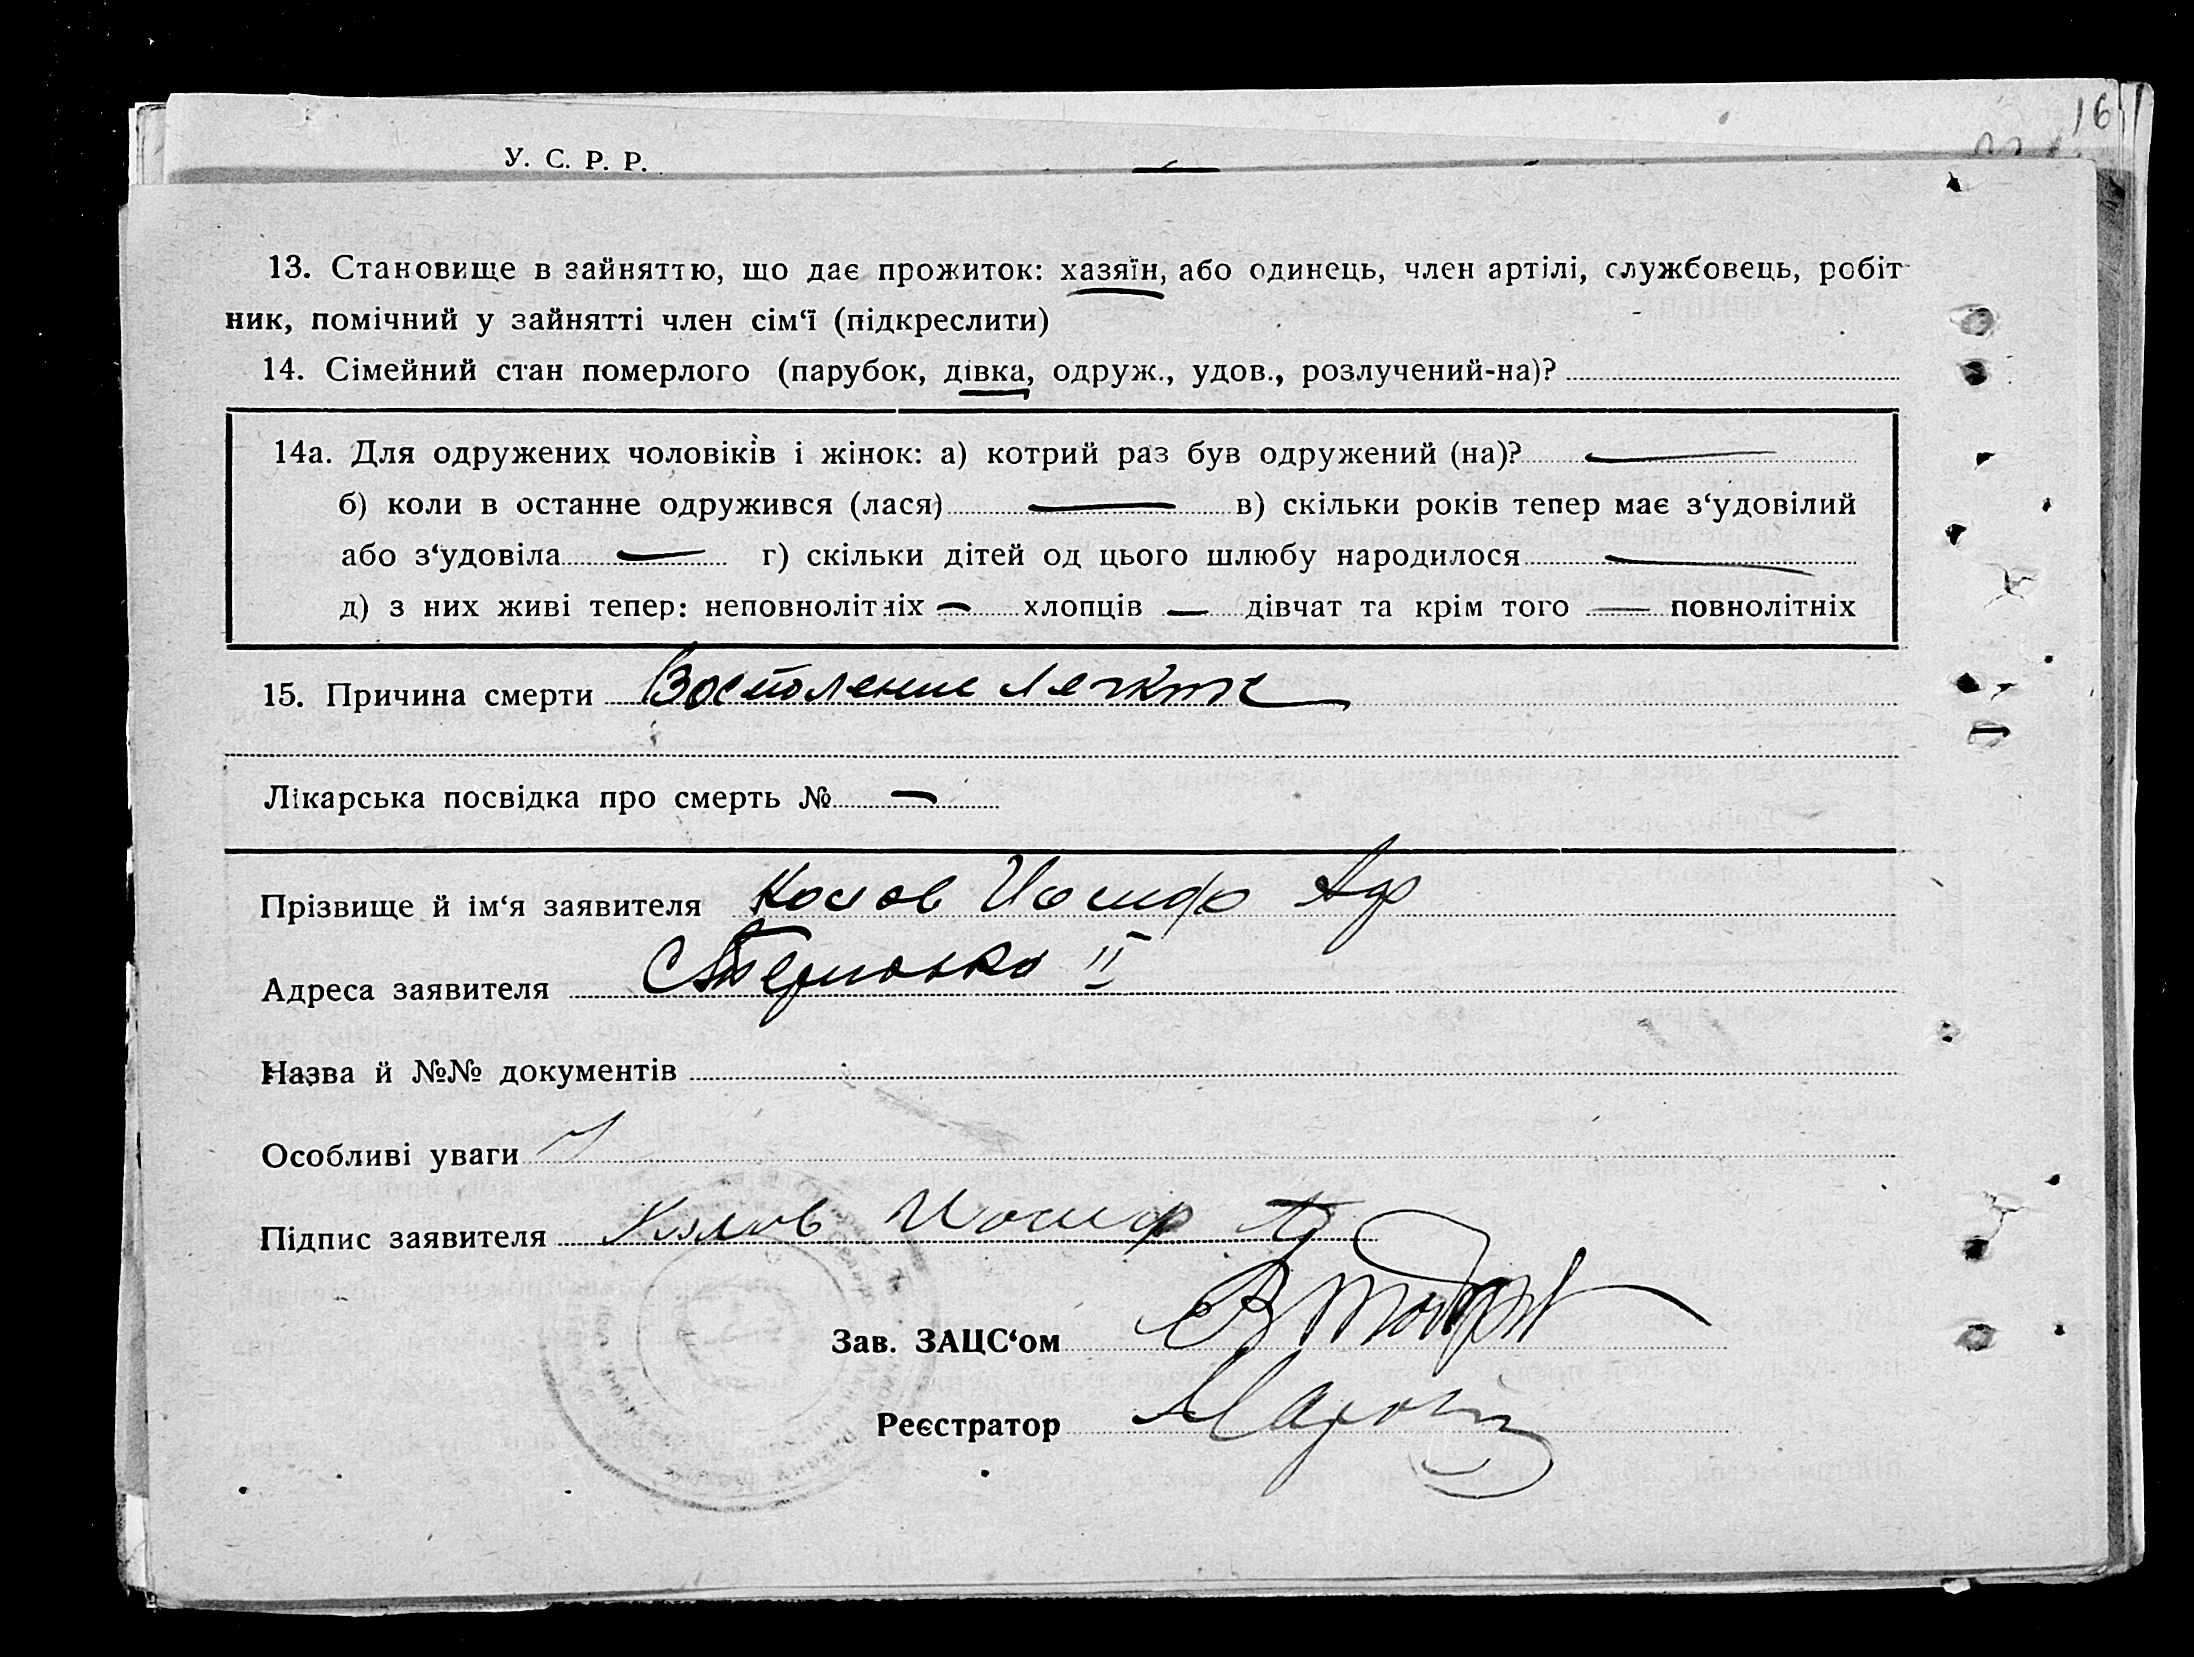 16
У. С. Р. Р.
13. Становище в зайняттю, що дає прожиток: хазяїн, або одинець, член артілі, службовець, робіт
ник, помічний у зайнятті член сім‘ї (підкреслити)
14. Сімейний стан померлого (парубок, дівка, одруж., удов., розлучений-на)?
14а. Для одружених чоловіків і жінок: а) котрий раз був одружений (на)? —
б) коли в останне одружився (лася) — в) скільки років тепер має з‘удовілий
або з‘удовіла — г) скільки дітей од цього шлюбу народилося —
д) з них живі тепер: неповнолітніх — хлопців — дівчат та крім того — повнолітніх
15. Причина смерти Восполение легких
Лікарська посвідка про смерть № —
Прізвище й ім‘я заявителя Иосиф
Адреса заявителя II
Назва й №№ документів
Особливі уваги
Підпис заявителя Иосиф
Зав. ЗАЦС‘ом
Реєстратор